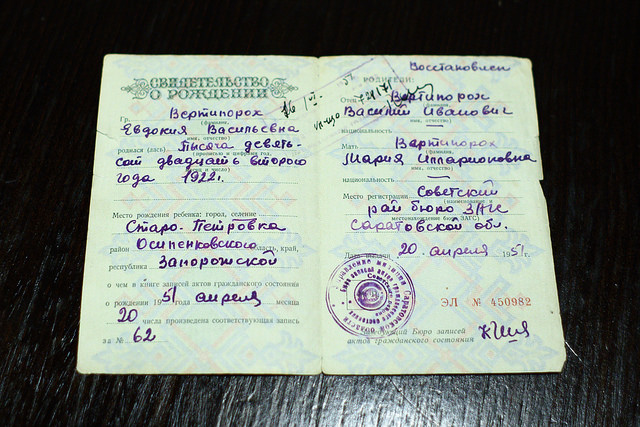 СВИДЕТЕЛЬСТВО
О РОЖДЕНИИ
Гр. Вертипорох
(фамилия,
Евдокия Васильевна
имя, отчество)
родился (лась) Тысяча девять-
(прописью и цифрами год,
сот двадцать второго
месяц и число)
года 1922 г.
Место рождения ребенка: город, селение
Старо-Петровка
район Осипенковского область, край,
республика Запорожской
о чем в книге записей актов гражданского состояния
о рождении 1951 года апреля месяца
20 числа произведена соответствующая запись
за № 62
Восстановлен
РОДИТЕЛИ:
Отец Вертипорох
(фамилия,
Василий Иванович
имя, отчество)
национальность —
Мать Вертипорох
(фамилия,
Мария Илларионовна
имя, отчество)
национальность —
Место регистрации Советский
(наименование и
рай бюро ЗАГС
местонахождение бюро ЗАГС)
Саратовской обл.
Дата выдачи 20 апреля 1951 г.
ЭЛ № 450982
Заведующий Бюро записей
актов гражданского состояния